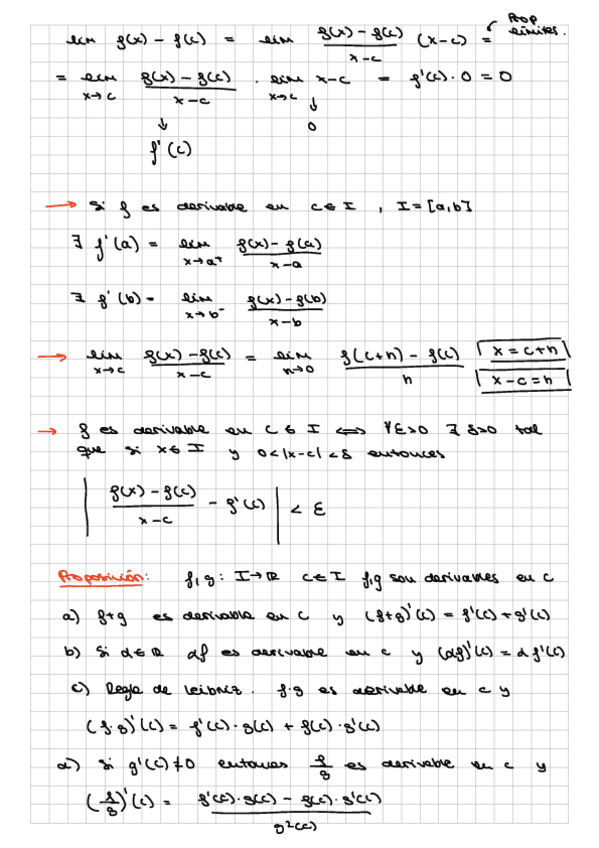 lim f(x) - f(c) = lim (f(x) - f(c))/(x-c) (x-c) = Prop límites.
= lim x→c (f(x) - f(c))/(x-c) · lim x→c x-c = f'(c) · 0 = 0
↓ ↓
f'(c) 0
→ Si f es derivable en c ∈ I , I = [a,b]
∃ f'(a) = lim x→a⁺ (f(x) - f(a))/(x-a)
∃ f'(b) = lim x→b⁻ (f(x) - f(b))/(x-b)
→ lim x→c (f(x) - f(c))/(x-c) = lim h→0 (f(c+h) - f(c))/h x = c+h
x-c = h
→ f es derivable en c ∈ I ⟺ ∀ε>0 ∃ δ>0 tal
que si x ∈ I y 0<|x-c|<δ entonces
| (f(x) - f(c))/(x-c) - f'(c) | < ε
Proposición: f,g: I→ℝ c∈I f,g son derivables en c
a) f+g es derivable en c y (f+g)'(c) = f'(c) + g'(c)
b) Si α∈ℝ αf es derivable en c y (αf)'(c) = α f'(c)
c) Regla de Leibniz. f·g es derivable en c y
(f·g)'(c) = f'(c)·g(c) + f(c)·g'(c)
d) Si g'(c)≠0 entonces f/g es derivable en c y
(f/g)'(c) = (f'(c)·g(c) - f(c)·g'(c))/g²(c)